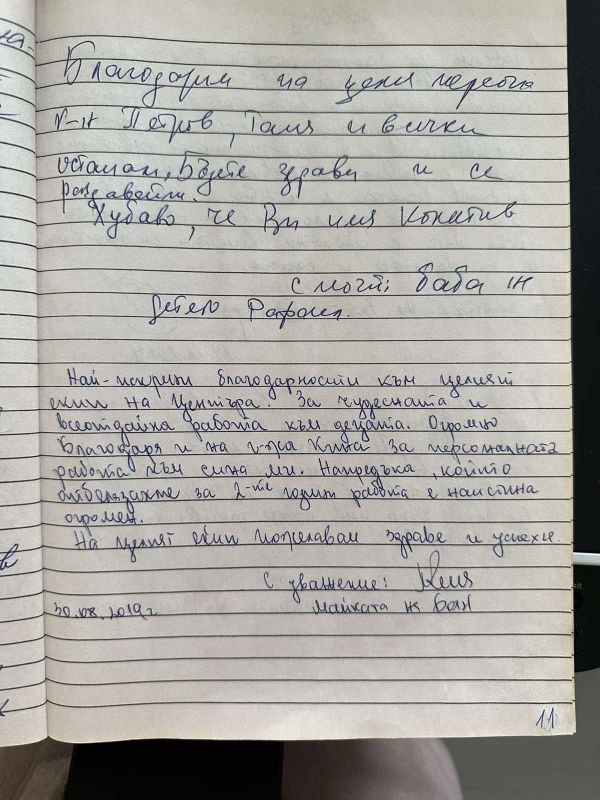 Благодарим на целия персонал
г-н Петров, Таня и всички
остали, Бъдете здрави и се
раздавайте.
Хубаво, че Ви има
с почит: баба
детето
Най-искрени благодарности към целият
екип на центъра! За чудесната и
всеотдайна работа към децата. Огромно
благодаря и на г-жа за персоналната
работа към сина ми. Напредъка, който
отбелязахме за 2-те години работа е наистина
огромен.
На целият екип пожелавам здраве и успехи.
С уважение:
30.08.2019г. майката на
11